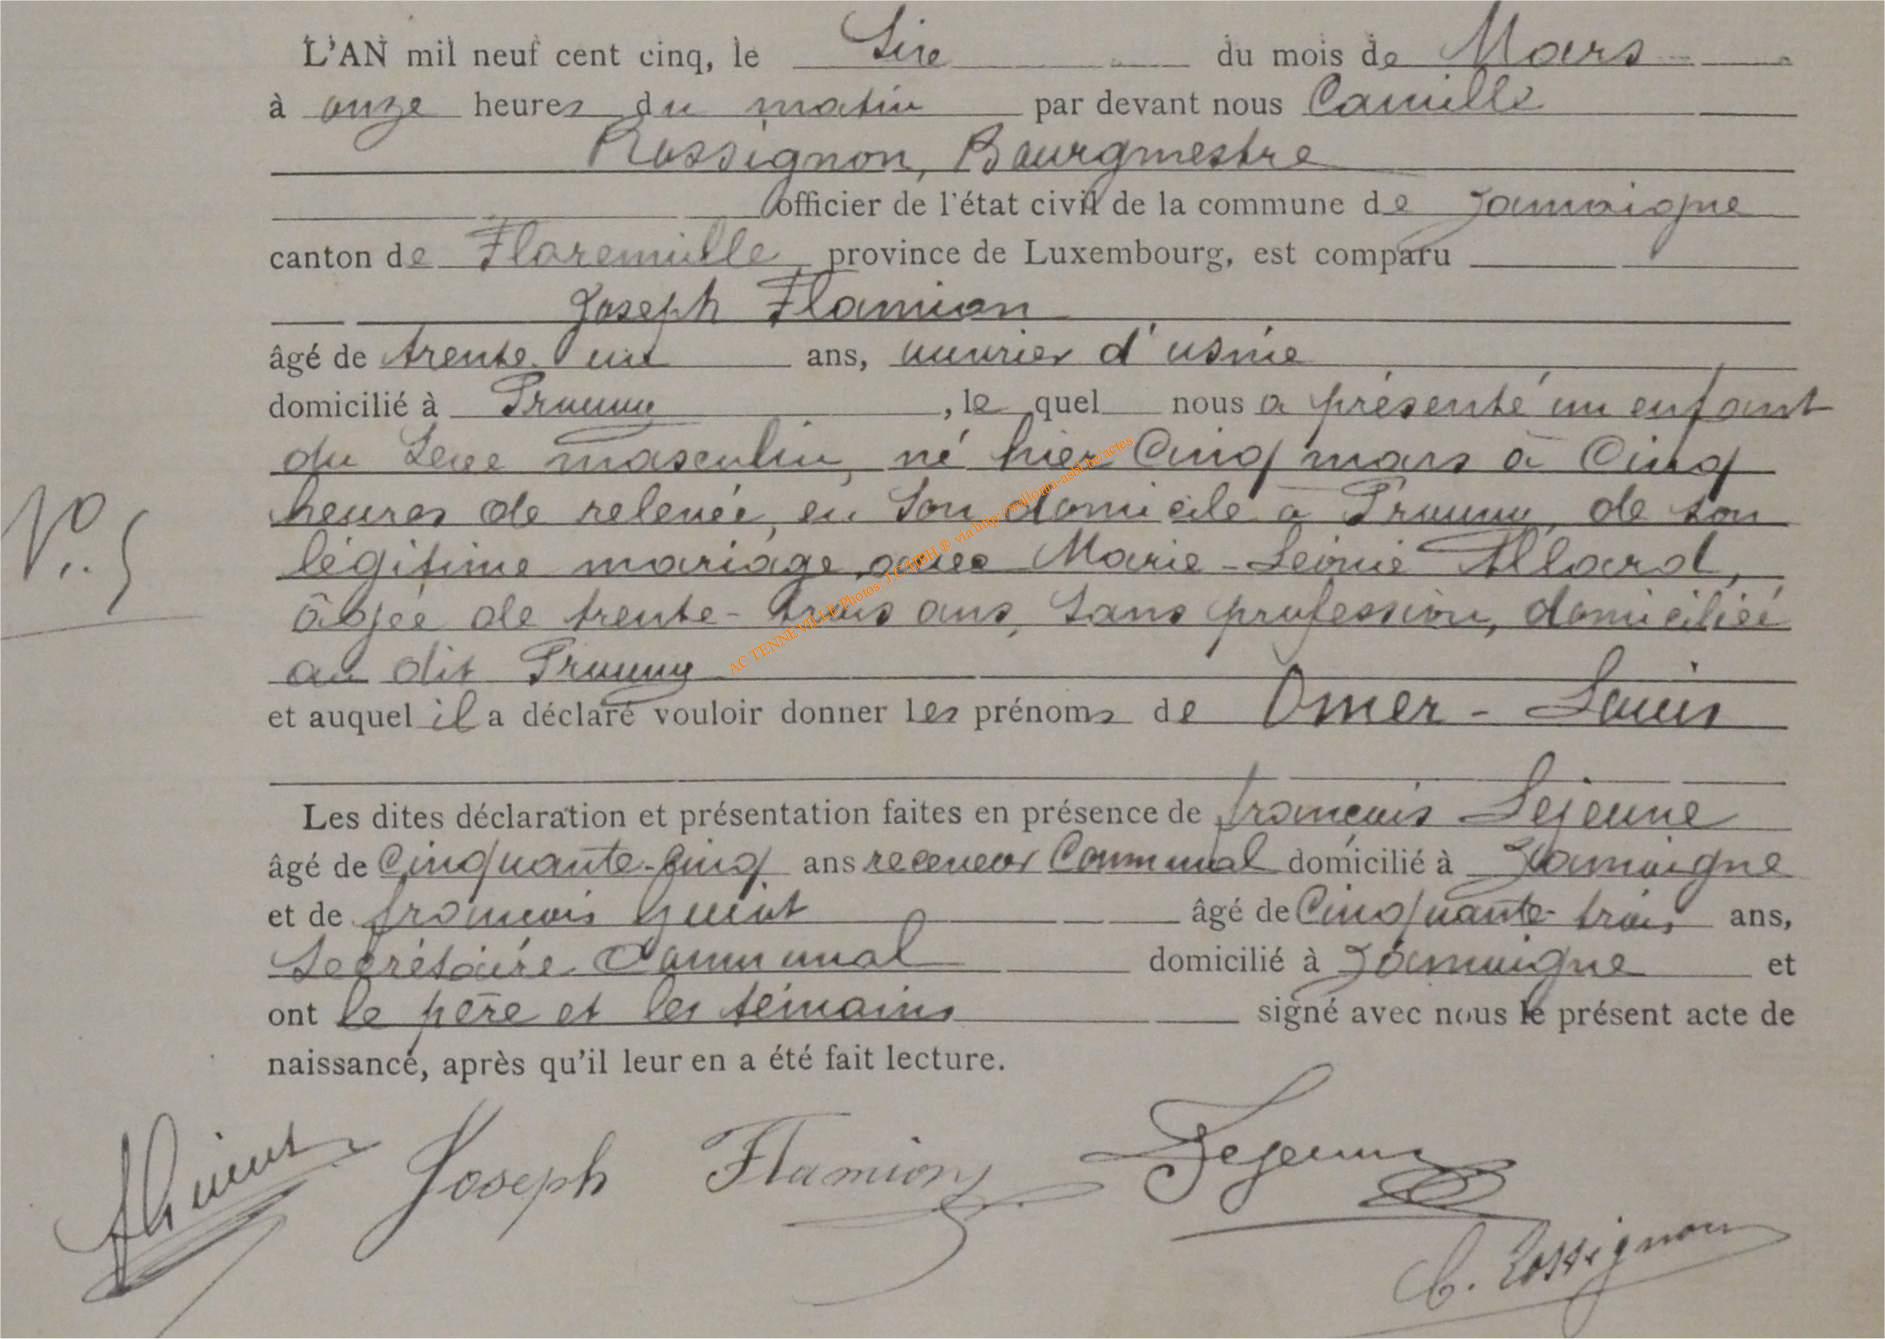 L'AN mil neuf cent cinq, le Six du mois de Mars
à onze heures du matin par devant nous Camille
Rossignon, Bourgmestre
officier de l'état civil de la commune de Jamoigne
canton de Florenville province de Luxembourg, est comparu
Joseph Flamion
âgé de trente un ans, ouvrier d'usine
domicilié à Prouvy, lequel nous a présenté un enfant
du Sexe masculin, né hier Cinq mars à Cinq
heures de relevée, en Son domicile à Prouvy, de son
N° 5
légitime mariage avec Marie-Léonie Allard,
âgée de trente-trois ans, Sans profession, domiciliée
au dit Prouvy
et auquel il a déclaré vouloir donner les prénoms de Omer-Louis
Les dites déclaration et présentation faites en présence de françois Lejeune
âgé de Cinquante-cinq ans receveur Communal domicilié à Jamoigne
et de françois âgé de Cinquante-trois ans,
Secrétaire Communal domicilié à Jamoigne et
ont le père et les témoins signé avec nous le présent acte de
naissance, après qu'il leur en a été fait lecture.
Joseph Flamion Lejeune
C. Rossignon
AC TENNEVILLE Photos